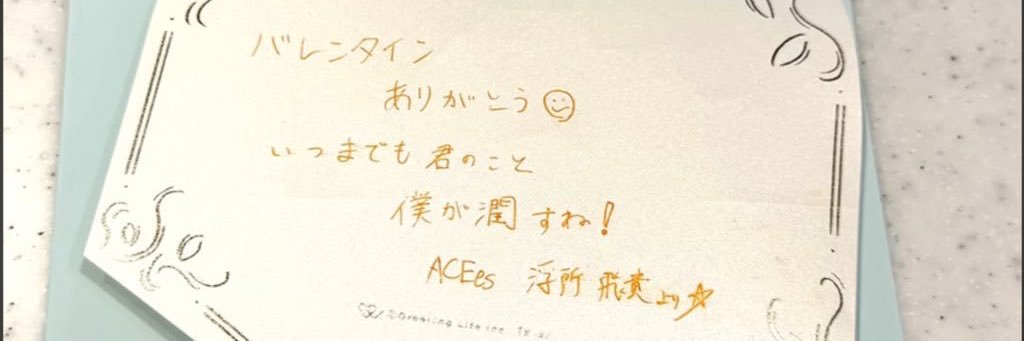 バレンタイン
ありがとう
いつまでも君のこと
僕が潤すね!
ACEes 浮所飛貴より☆
©Greeting Life Inc.